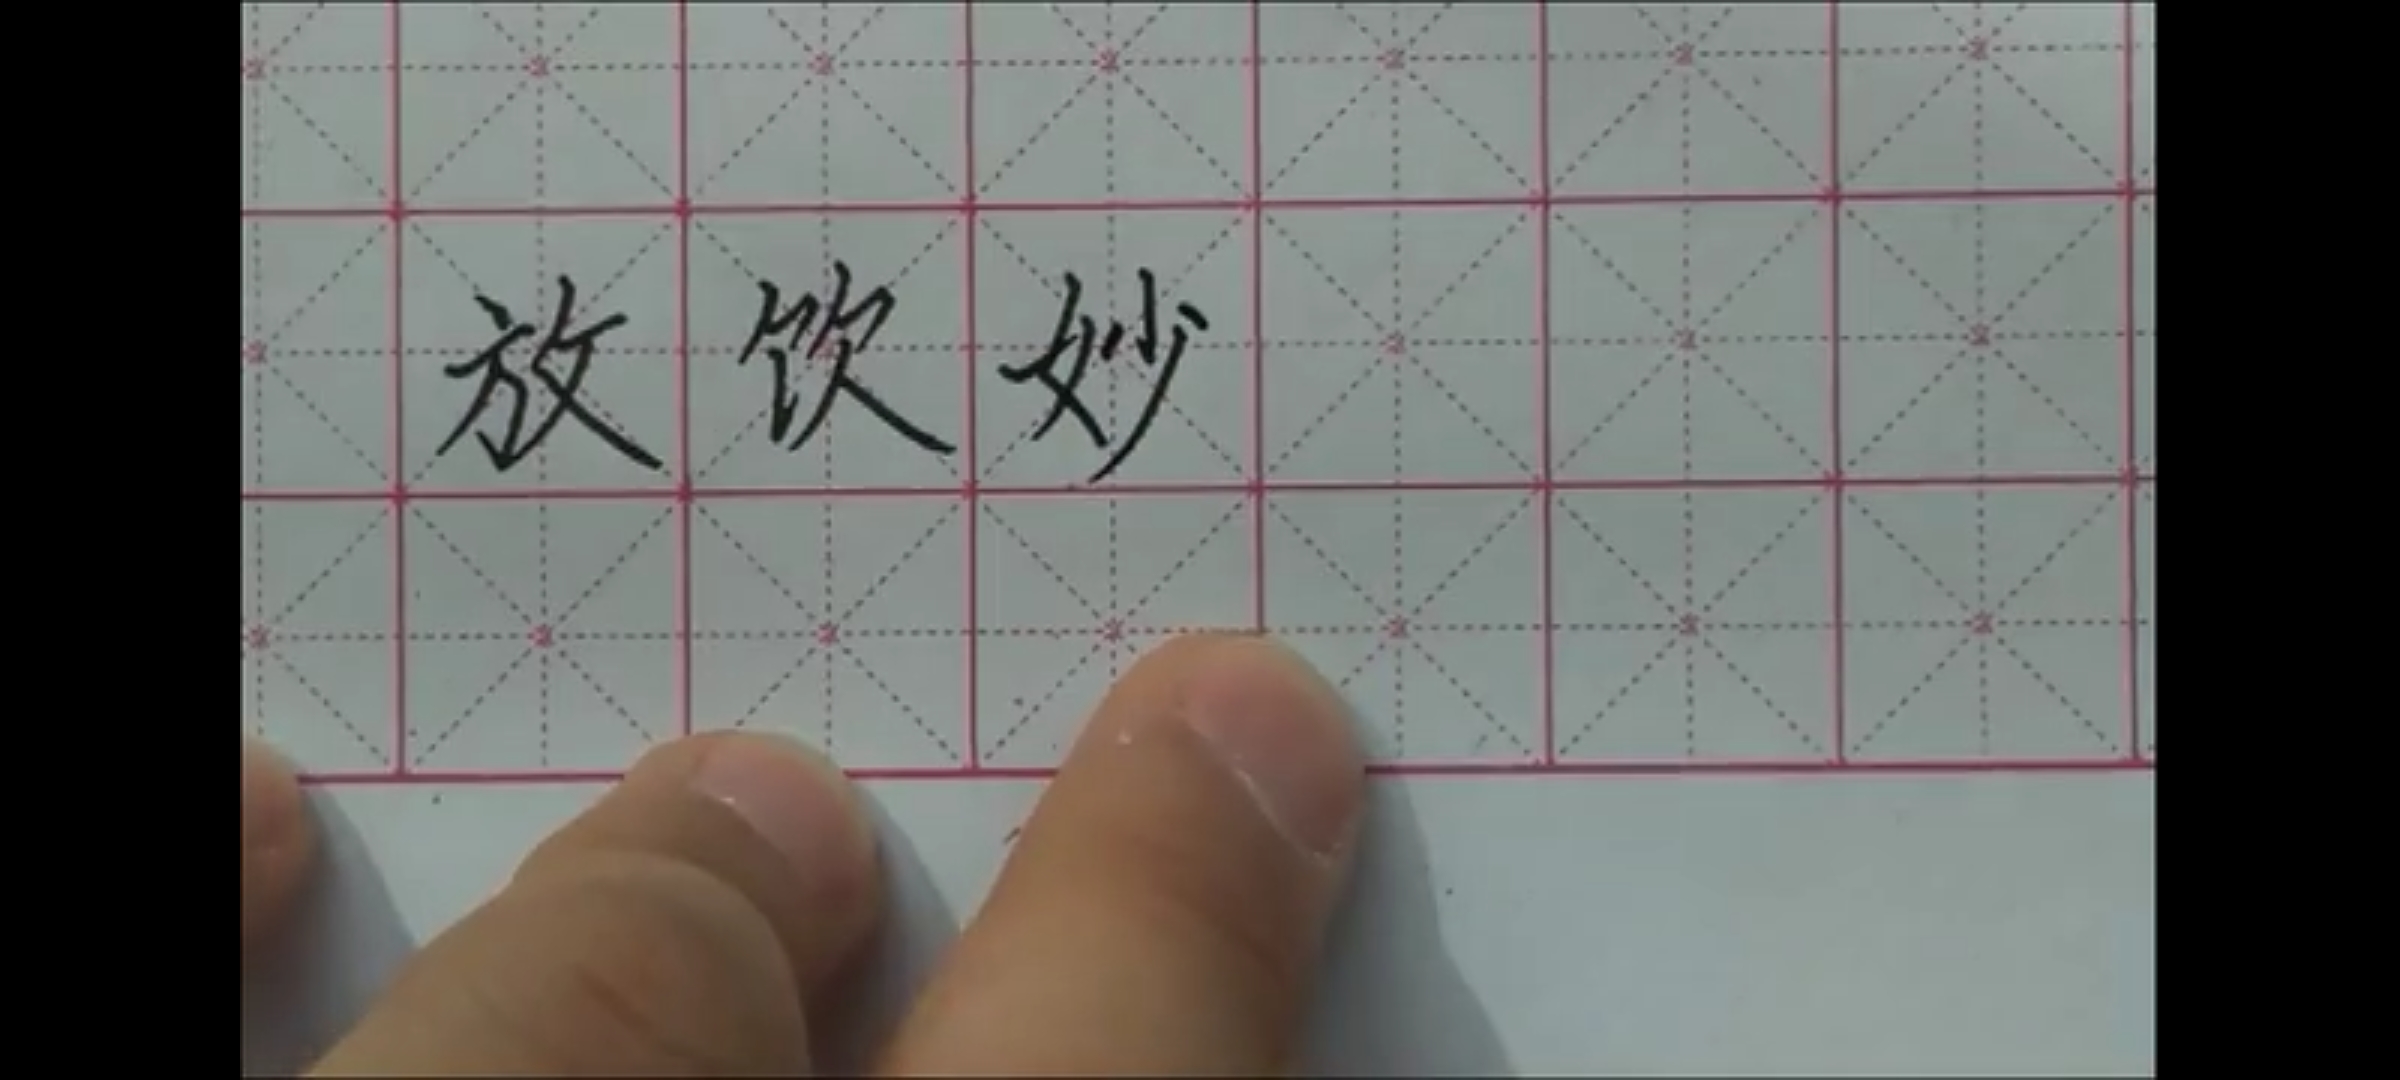 放饮妙